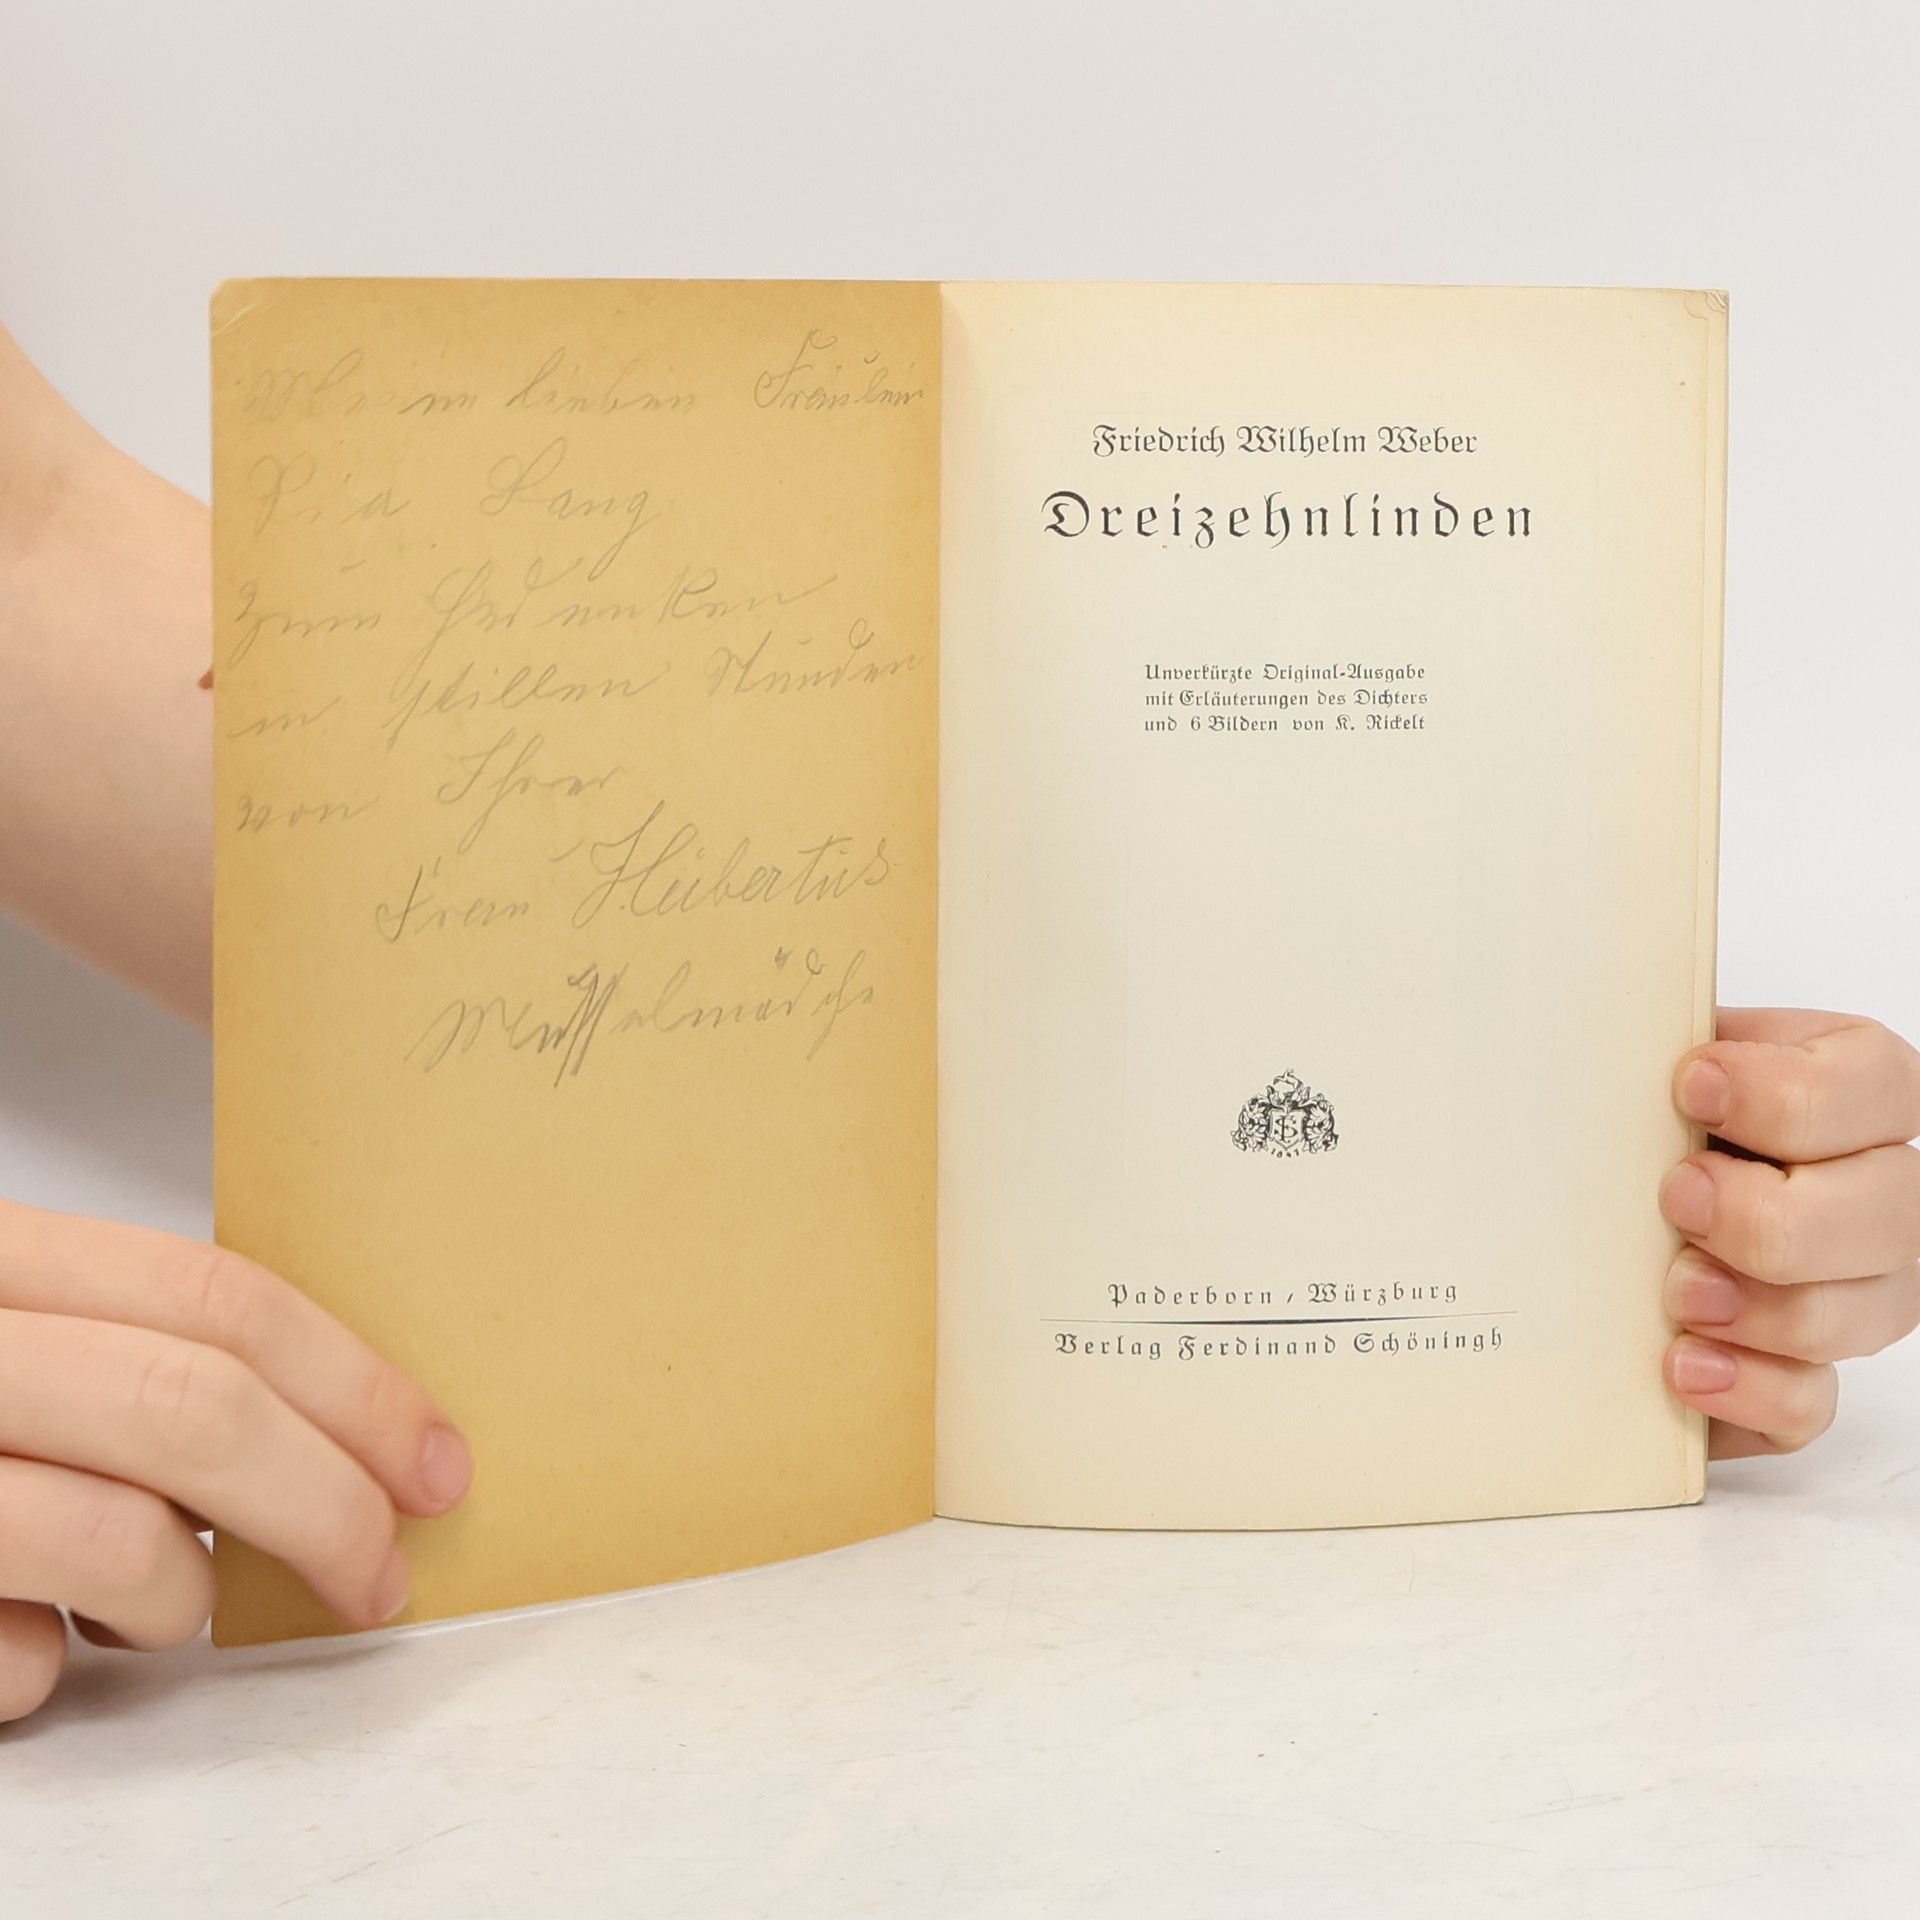 Meinem lieben Fräulein
Pia Lang
zum Gedenken
in stillen Stunden
von Ihrer
Frau Hübertus
Friedrich Wilhelm Weber
Dreizehnlinden
Unverkürzte Original-Ausgabe
mit Erläuterungen des Dichters
und 6 Bildern von K. Rickelt
1847
Paderborn / Würzburg
Verlag Ferdinand Schöningh